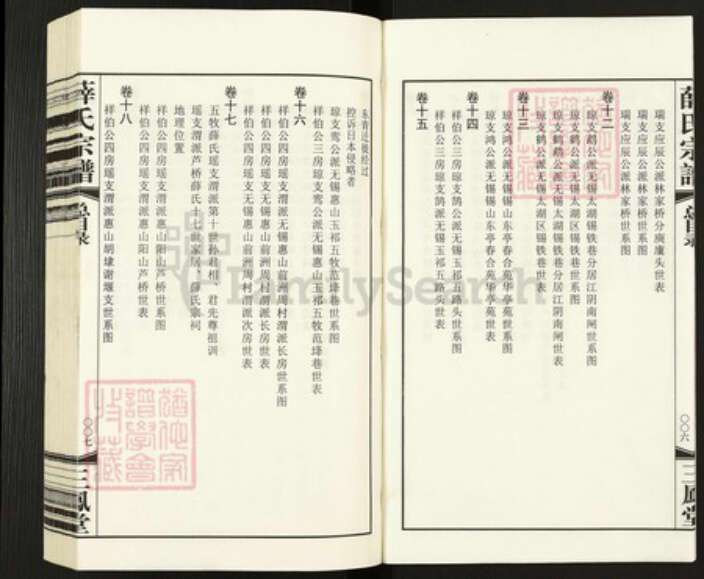 薛氏宗谱
总目录
〇〇六
三凤堂
瑞支应辰公派林家桥分庾廑头世表
瑞支应辰公派林家桥世系图
瑞支应辰公派林家桥世表
卷十二
琼支鹤公派无锡太湖锡铁巷分居江阴南闸世系图
琼支鹤公派无锡太湖区锡铁巷世系图
琼支鹤公派无锡太湖锡铁巷分居江阴南闸世表
琼支鹤公派无锡太湖区锡铁巷世表
卷十三
琼支鸿公派无锡锡山东亭春合苑华亭苑世系图
琼支鸿公派无锡锡山东亭春合苑华亭苑世表
卷十四
祥伯公三房琼支鹄派无锡玉祁五路头世系图
祥伯公三房琼支鹄派无锡玉祁五路头世表
卷十五
东青迁徙经过
控诉日本侵略者
琼支鸾公派无锡惠山玉祁五牧范垟巷世系图
祥伯公三房琼支鸾公派无锡惠山玉祁五牧范垟巷世表
卷十六
祥伯公四房瑶支渭派无锡惠山前洲周村渭派长房世系图
祥伯公四房瑶支无锡惠山前洲周村渭派长房世表
祥伯公四房瑶支无锡惠山前洲周村渭派次房世表
卷十七
五牧薛氏瑶支渭派第十世孙君相、君先尊祖训
瑶支渭派芦桥薛氏十七世家居、薛氏宗祠
地理位置
祥伯公四房瑶支渭派惠山阳山芦桥世系图
祥伯公四房瑶支渭派惠山阳山芦桥世表
卷十八
祥伯公四房瑶支渭派惠山胡埭谢堰支世系图
薛氏宗谱
总目录
〇〇七
三凤堂
FamilySearch
犹他家
谱学会
持藏